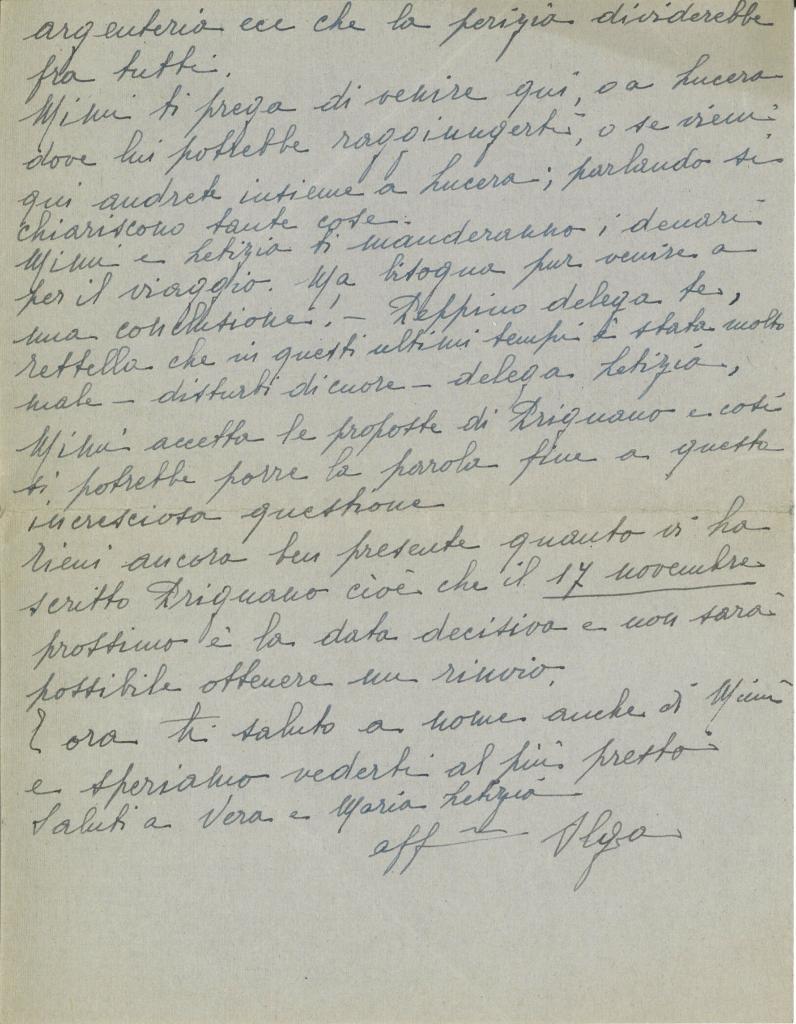 argenteria ecc che la perizia dividerebbe
fra tutti.
Mimì ti prega di venire qui, o a Lucera
dove lui potrebbe raggiungerti, o se vieni
qui andrete insieme a Lucera; parlando si
chiariscono tante cose.
Mimì e Letizia ti manderanno i denari
per il viaggio. Ma bisogna pur venire a
una conclusione! - Peppino delega te,
che in questi ultimi tempi è stata molto
male - disturbi di cuore - delega Letizia,
Mimì accetta le proposte di Prignano e così
si potrebbe porre la parola fine a questa
incresciosa questione
Tieni ancora ben presente quanto vi ha
scritto Prignano cioè che il 17 novembre
prossimo è la data decisiva e non sarà
possibile ottenere un rinvio.
E ora ti saluto a nome anche di Mimì
e speriamo vederti al più presto
Saluti a Vera e Maria Letizia
aff Olga